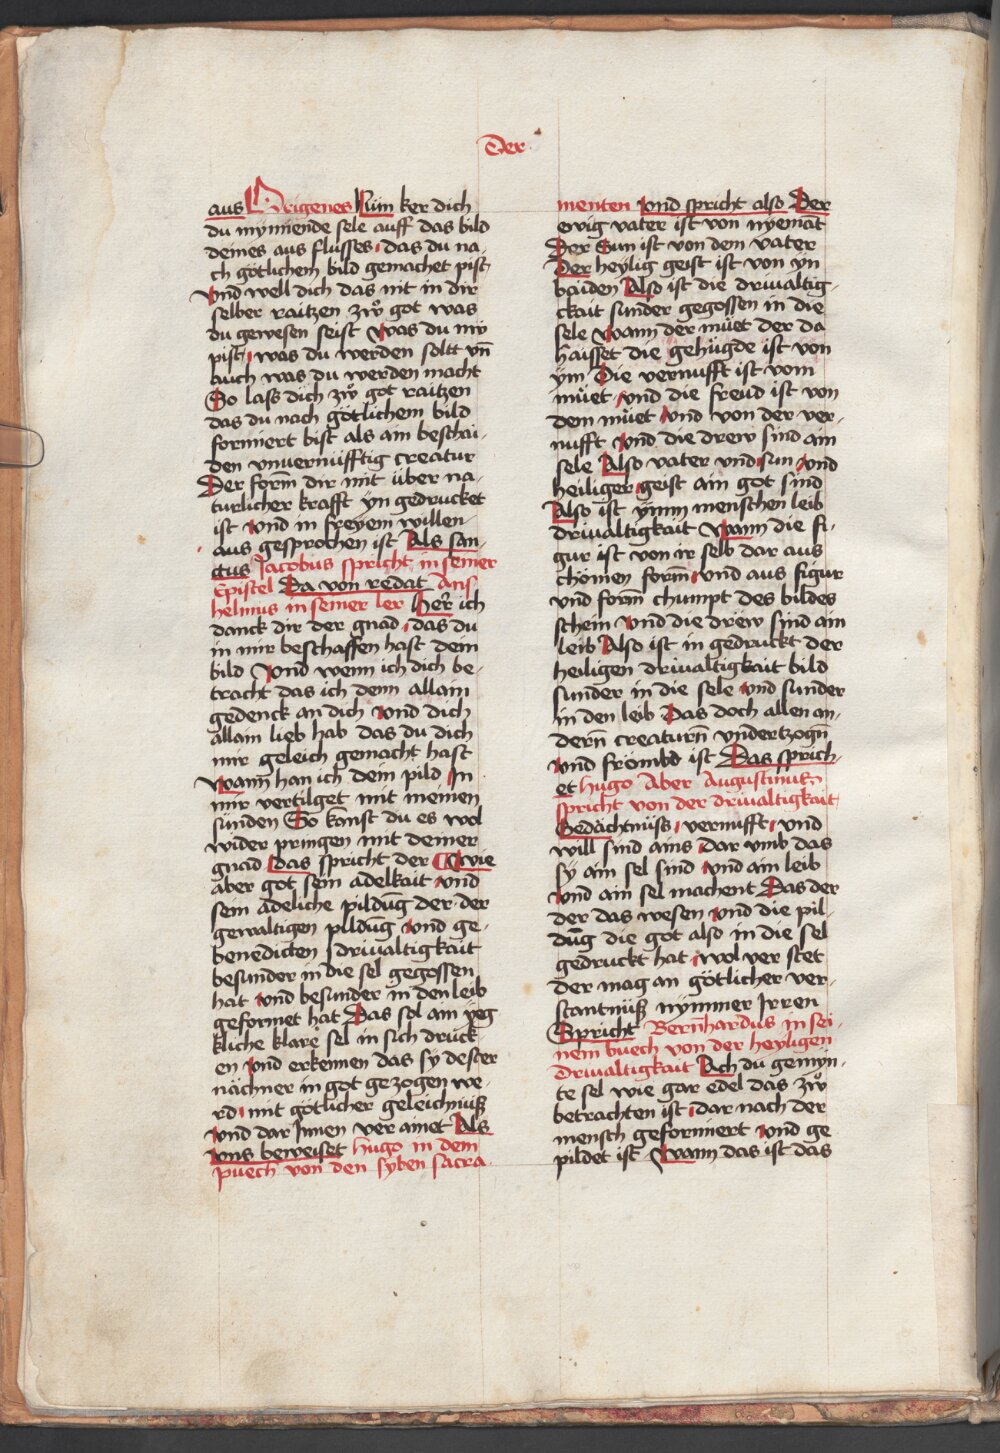 Der
aus Origenes Kum ker dich
du mynniende sele auff das bild
deines aus flusses das du na-
ch götlichem bild gemachet pist
Vnd well dich das nit in dir
selber raitzen zw got was
du gewesen seist Was du nu
pist was du werden soltt vn̄
auch was du werden macht
So lass dich zw got raitzen
das du nach götlichem bild
formiert bist als ain beschai-
den vnuernufftig creatur
Der form̄ dir mit über na-
turlicher krafft yn gedrucket
ist Vnd in freyem willen
aus gesprochen ist Als san-
ctus Jacobus spricht in seiner
Epistel Da von redat Ans-
helmus in seiner ler Her ich
danck dir der gnad das du
in mir beschaffen hast dein
bild Vnd wenn ich dich be-
tracht das ich denn allain
gedenck an dich Vnd dich
allain lieb hab das du dich
mir geleich gemacht hast
Wann̄ han ich dem pild In
mir vertilget mit meinen
sünden So kanst du es wol
wider pringen mit deiner
gnad Das spricht der Wie
aber got sein adelkait Vnd
sein adeliche pildūg der der
gewaltigen pildūg Vnd ge-
benedicten driualtigkait
besunder in die sel gegossen
hat Vnd besunder in den leib
geformet hat Das sol am yeg
kliche klare sel in sich druck
en Vnd erkennen das sy dester
nächner in got gezogen we-
rd mit götlicher geleichnuß
Vnd dar Innen ver ainet Als
Vns beweiset hugo in dem
puech von den syben sacra-
menten Vnd spricht also Der
ewig vater ist von nyemāt
Der Sun ist von dem vater
Der heylig geist ist von yn
baiden Also ist die driualtig-
ckait sunder gegossen in die
sele Wann der müet der da
haisset die gehügde ist von
ym Die vernufft ist vom
müet Vnd die freud ist von
dem müet Vnd von der ver-
nufft Vnd die drew sind ain
sele Also vater vnd sun Vnd
heiliger geist ain got sind
Also ist ynnn menschen leib
driualtigkait Wann die fi-
gur ist von ir selb dar aus
chömen form̄ Vnd aus figur
vnd form̄ chumpt des bildes
schein Vnd die drëw sind ain
leib Also ist in gedruckt der
heiligen driualtigkait bild
sunder in die sele Vnd sunder
in den leib Das doch allen an-
dern̄ creaturn̄ vndertzogn̄
Vnd frömbd ist Das sprich-
et hugo Aber Augustinus
spricht von der driualtigkait
Gedächtnüss vernufft Vnd
will sind ains dar vmb das
sy ain sel sind Vnd ain leib
Vnd ain sel machent Das der
der das wesen Vnd die pil-
dūg die got also in die sel
gedruckt hat wol ver stet
der mag an götlicher ver-
stantnüß nymmer Irren
Spricht Bernhardus in sei-
nem buech von der heyligen
Driualtigkait Ach du gemyn-
te sel wie gar edel das zw
betrachten ist dar nach der
mensch geformiert Vnd ge
pildet ist Wann das ist das